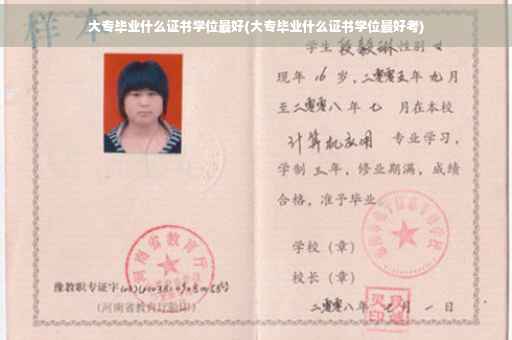 大专毕业什么证书学位最好(大专毕业什么证书学位最好考)
样本
学生段毅琳性别女
现年16岁，二零零五年九月
至二零零八年七月在本校
计算机应用 专业学习，
学制三年，修业期满，成绩
合格，准予毕业。
学校（章）
校长（章）
二零零八年七月一日
河南省教育厅
豫教职专证字
(河南省教育厅验印)